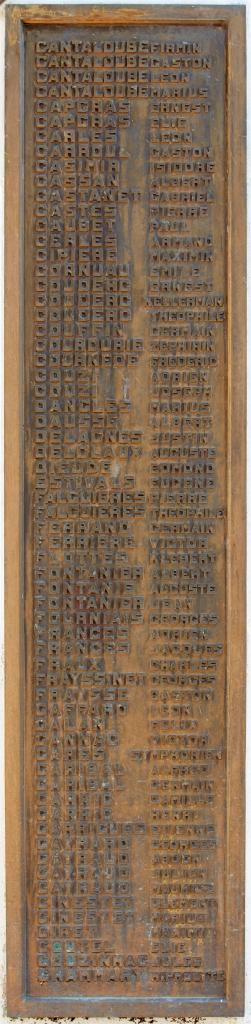 CANTALOUBE FIRMIN
CANTALOUBE GASTON
CANTALOUBE LEON
CANTALOUBE MARIUS
CAPGRAS ERNEST
CAPGRAS ELIE
CARLES LEON
CARROUL GASTON
CASIMIR ISIDORE
CASSAN ALBERT
CASTANET GABRIEL
CASTES PIERRE
CAUBET PAUL
CERLES ARMAND
CIPIERE MAXIMIN
CORNUAU EMILE
COUDERC ERNEST
COUDERC KELLERMAN
COUDERC THEOPHILE
COUFFIN GERMAIN
COURDURIE ZEPHIRIN
COURNEDE FREDERIC
COUZI ADRIEN
COUZI JOSEPH
DANGLES MARIUS
DAUSSE ALBERT
DELAGNES JUSTIN
DELCLAUX AUGUSTE
DIEUDE EDMOND
ESTIVALS EUGENE
FALGUIERES PIERRE
FALGUIERES THEOPHILE
FERRAND GERMAIN
FERRIERE VICTOR
FLOTTES KLEBERT
FONTANIER ALBERT
FONTANIE AUGUSTE
FONTANIER JEAN
FOURNIALS GEORGES
FRANCES ADRIEN
FRANCES JACQUES
FRAUX CHARLES
FRAYSSINET GEORGES
FRAYSSE GASTON
GAFFARD LEON
GALAN FELIX
GANNAC
GARES SYMPHORIEN
GARIBAL ALFRED
GARIBAL GERMAIN
GARRIC CAMILLE
GARRIC HENRI
GARRIGUES ETIENNE
GAYRAUD GEORGES
GAYRAUD ABDON
GAYRAUD JULIEN
GAYRAUD MAURICE
GINESTET CLEMENT
GINESTET MARIUS
GIREN MAXIMIN
GOREL ELIE
GOUZINHAC JULES
GRAMMARY HIPPOLYTE